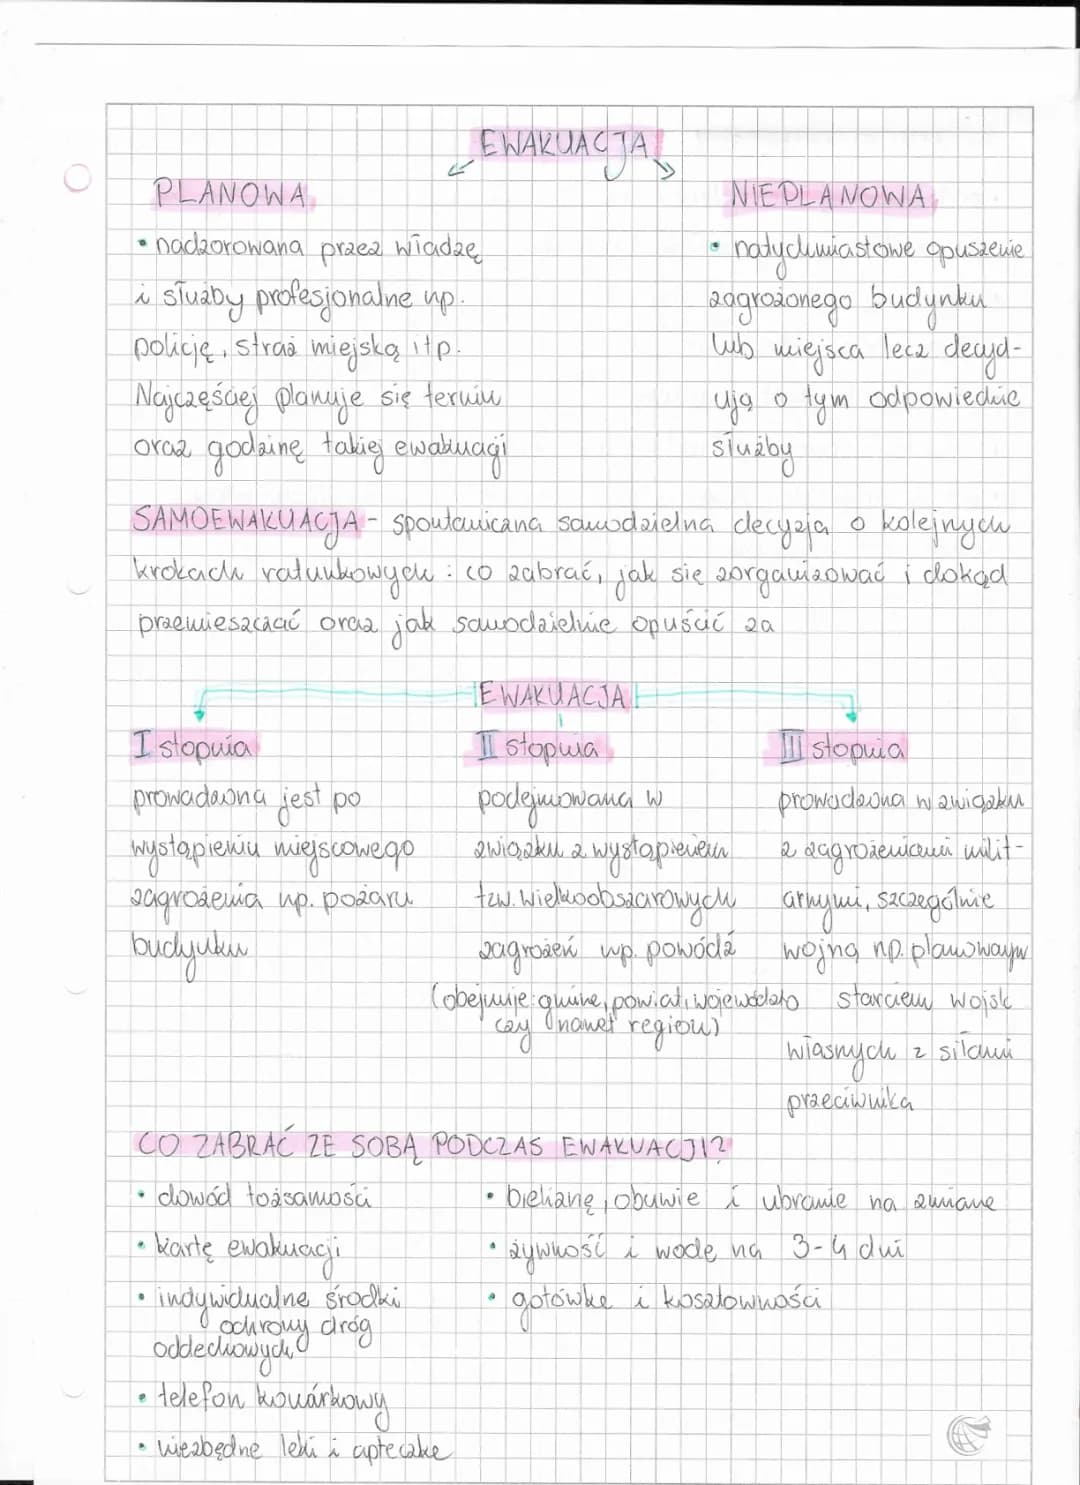 EWAKUACJA
PLANOWA
• nadzorowana przez władzę
i służby profesjonalne np.
policję, straż miejską itp.
Najczęściej planuje się termin
oraz godzinę takiej ewakuacji
NIEPLANOWA
• natychmiastowe opuszenie
zagrożonego budynku
lub miejsca lecz decyd-
ują o tym odpowiednie
służby
SAMOEWAKUACJA - spontaniczna samodzielna decyzja o kolejnych
krokach ratunkowych : co zabrać, jak się zorganizować i dokąd
przemieszczać oraz jak samodzielnie opuścić za
EWAKUACJA
I stopnia
prowadzona jest po
wystąpieniu miejscowego
zagrożenia np. pożaru
budynku
II stopnia
podejmowana w
związku z wystąpieniem
tzw. wielkoobszarowych
zagrożeń np. powódź
(obejmuje: gminę, powiat, województwo
czy nawet region)
III stopnia
prowadzona w związku
z zagrożeniami milit-
arnymi, szczególnie
wojną np. planowanym
starciem wojsk
własnych z siłami
przeciwnika
CO ZABRAĆ ZE SOBĄ PODCZAS EWAKUACJI?
• dowód tożsamości
• kartę ewakuacji
• indywidualne środki
ochrony dróg
oddechowych
• telefon komórkowy
• niezbędne leki i apteczkę
• bieliznę, obuwie i ubranie na zmianę
• żywność i wodę na 3-4 dni
• gotówkę i kosztowności